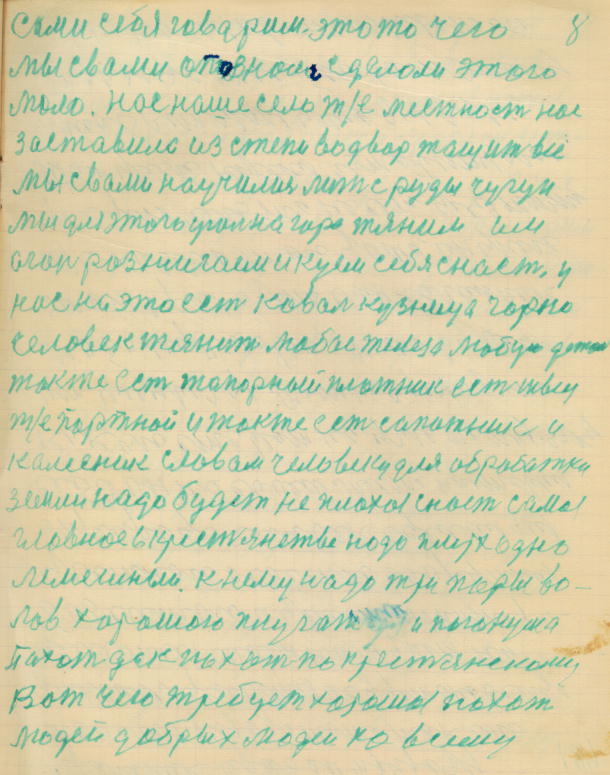 сами себя говарим. это то чего 8
мы свами опозноли сделоли этого
мало. нас наше село т/е местност нас
заставило из степи во двор тащит всё
мы свами научилия лит с руды чугун
мы для этого угол на горе тяним или
огон розжигаем и куем себя снаст. у
нас на это ест ковал кузница чорно
человек тянит любое железа любую детал
также ест тапорный плотник ест швец
т/е партной и также ест сапожник и
калесник словам человеку для обработки
земли надо будет не плохоя снаст самоя
главное в крестянстве надо плуг одно
лемешным. к нему надо три пары во-
лов хорошого плугат и погоныча
пахат дак пахат по крестянскому
Вот чего требует хорошоя пахот
людей добрых людей ко всему